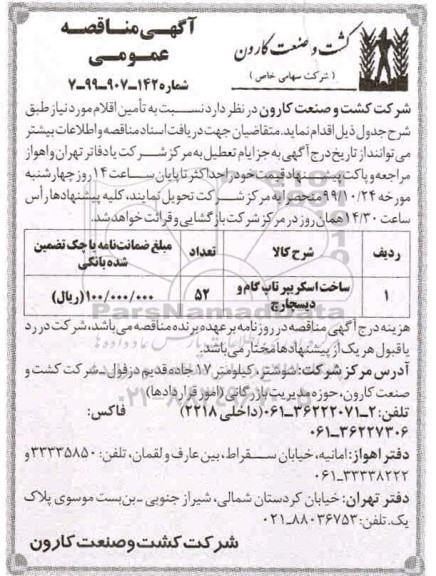 آگهی مناقصه
عمومی
شماره ۱۴۲-۹۰۷-۹۹-۷
کشت و صنعت کارون
(شرکت سهامی خاص)
شرکت کشت و صنعت کارون در نظر دارد نسبت به تأمین اقلام مورد نیاز طبق
شرح جدول ذیل اقدام نماید. متقاضیان جهت دریافت اسناد مناقصه و اطلاعات بیشتر
می توانند از تاریخ درج آگهی به جز ایام تعطیل به مرکز شرکت یا دفاتر تهران و اهواز
مراجعه و پاکت پیشنهاد قیمت خود را حداکثر تا پایان ساعت ۱۴ روز چهارشنبه
مورخه ۹۹/۱۰/۲۴ منحصراً به مرکز شرکت تحویل نمایند، کلیه پیشنهادها رأس
ساعت ۱۴/۳۰ همان روز در مرکز شرکت بازگشایی و قرائت خواهد شد.
ردیف شرح کالا تعداد مبلغ ضمانت نامه یا چک تضمین شده بانکی
۱ ساخت اسکریپر تاپ گام و دیسچارج ۵۲ ۱۰۰/۰۰۰/۰۰۰ (ریال)
هزینه درج آگهی مناقصه در روزنامه بر عهده برنده مناقصه می باشد، شرکت در رد
یا قبول هر یک از پیشنهادها مختار می باشد.
آدرس مرکز شرکت: شوشتر، کیلومتر ۱۷ جاده قدیم دزفول، شرکت کشت و
صنعت کارون، حوزه مدیریت بازرگانی (امور قراردادها)
تلفن: ۲-۳۶۲۲۲۰۷۱-۰۶۱ (داخلی ۲۲۱۸) فاکس:
۰۶۱-۳۶۲۲۷۳۰۶
دفتر اهواز: امانیه، خیابان سقراط، بین عارف و لقمان، تلفن: ۳۳۳۳۵۸۵۰ و
۰۶۱-۳۳۳۳۸۲۲۲
دفتر تهران: خیابان کردستان شمالی، شیراز جنوبی - بن بست موسوی پلاک
یک. تلفن: ۸۸۰۳۶۷۵۳-۰۲۱
شرکت کشت و صنعت کارون
ParsNamadData